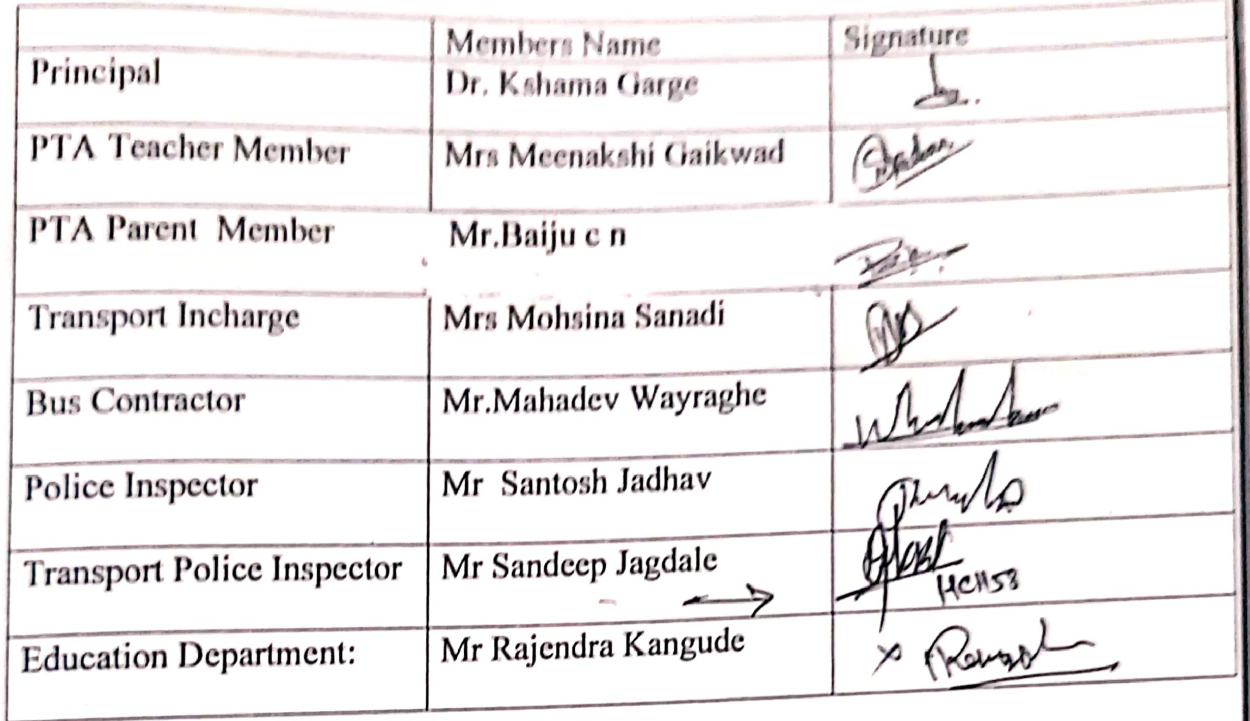 Members Name Signature
Principal Dr. Kshama Garge
PTA Teacher Member Mrs Meenakshi Gaikwad
PTA Parent Member Mr.Baiju c n
Transport Incharge Mrs Mohsina Sanadi
Bus Contractor Mr.Mahadev Wayraghe
Police Inspector Mr Santosh Jadhav
Transport Police Inspector Mr Sandeep Jagdale
HC1153
Education Department: Mr Rajendra Kangude